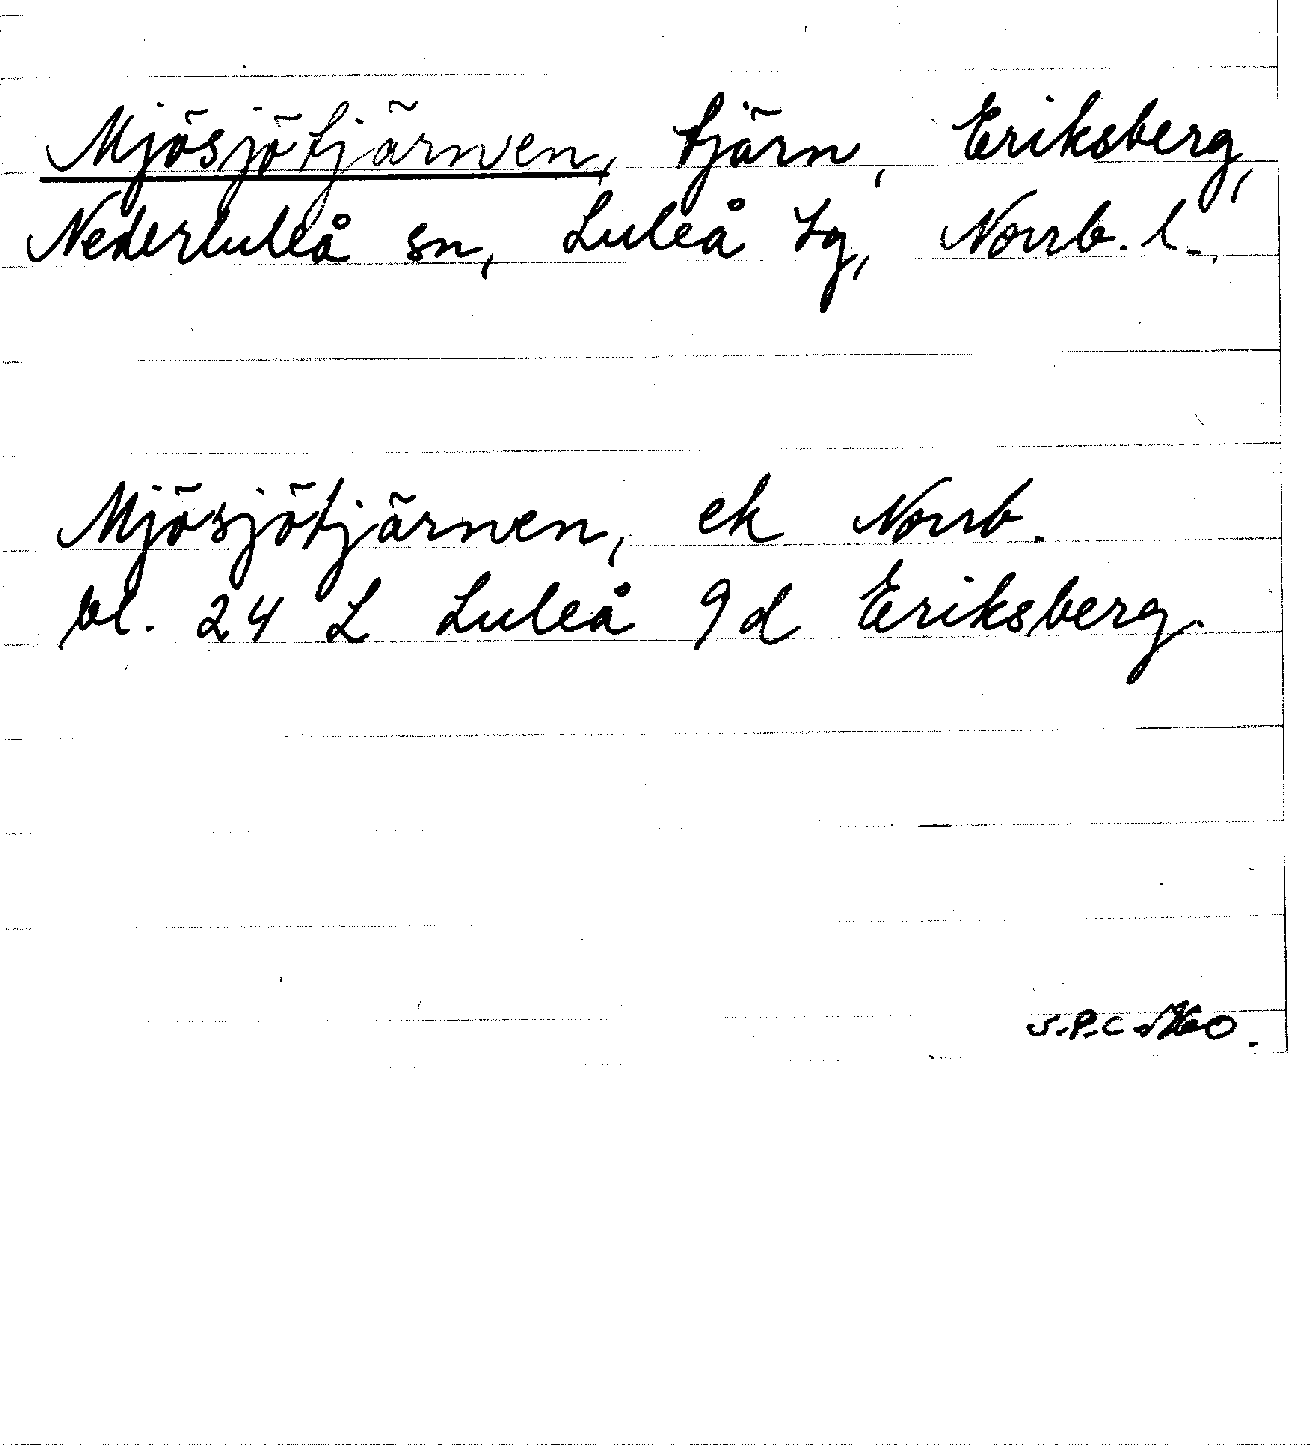 Mjösjötjärnen, tjärn, Eriksberg,
Nederluleå sn, Luleå tg, Norrb. l.
Mjösjötjärnen, ek Norrb.
bl. 24 L Luleå 9d Eriksberg.